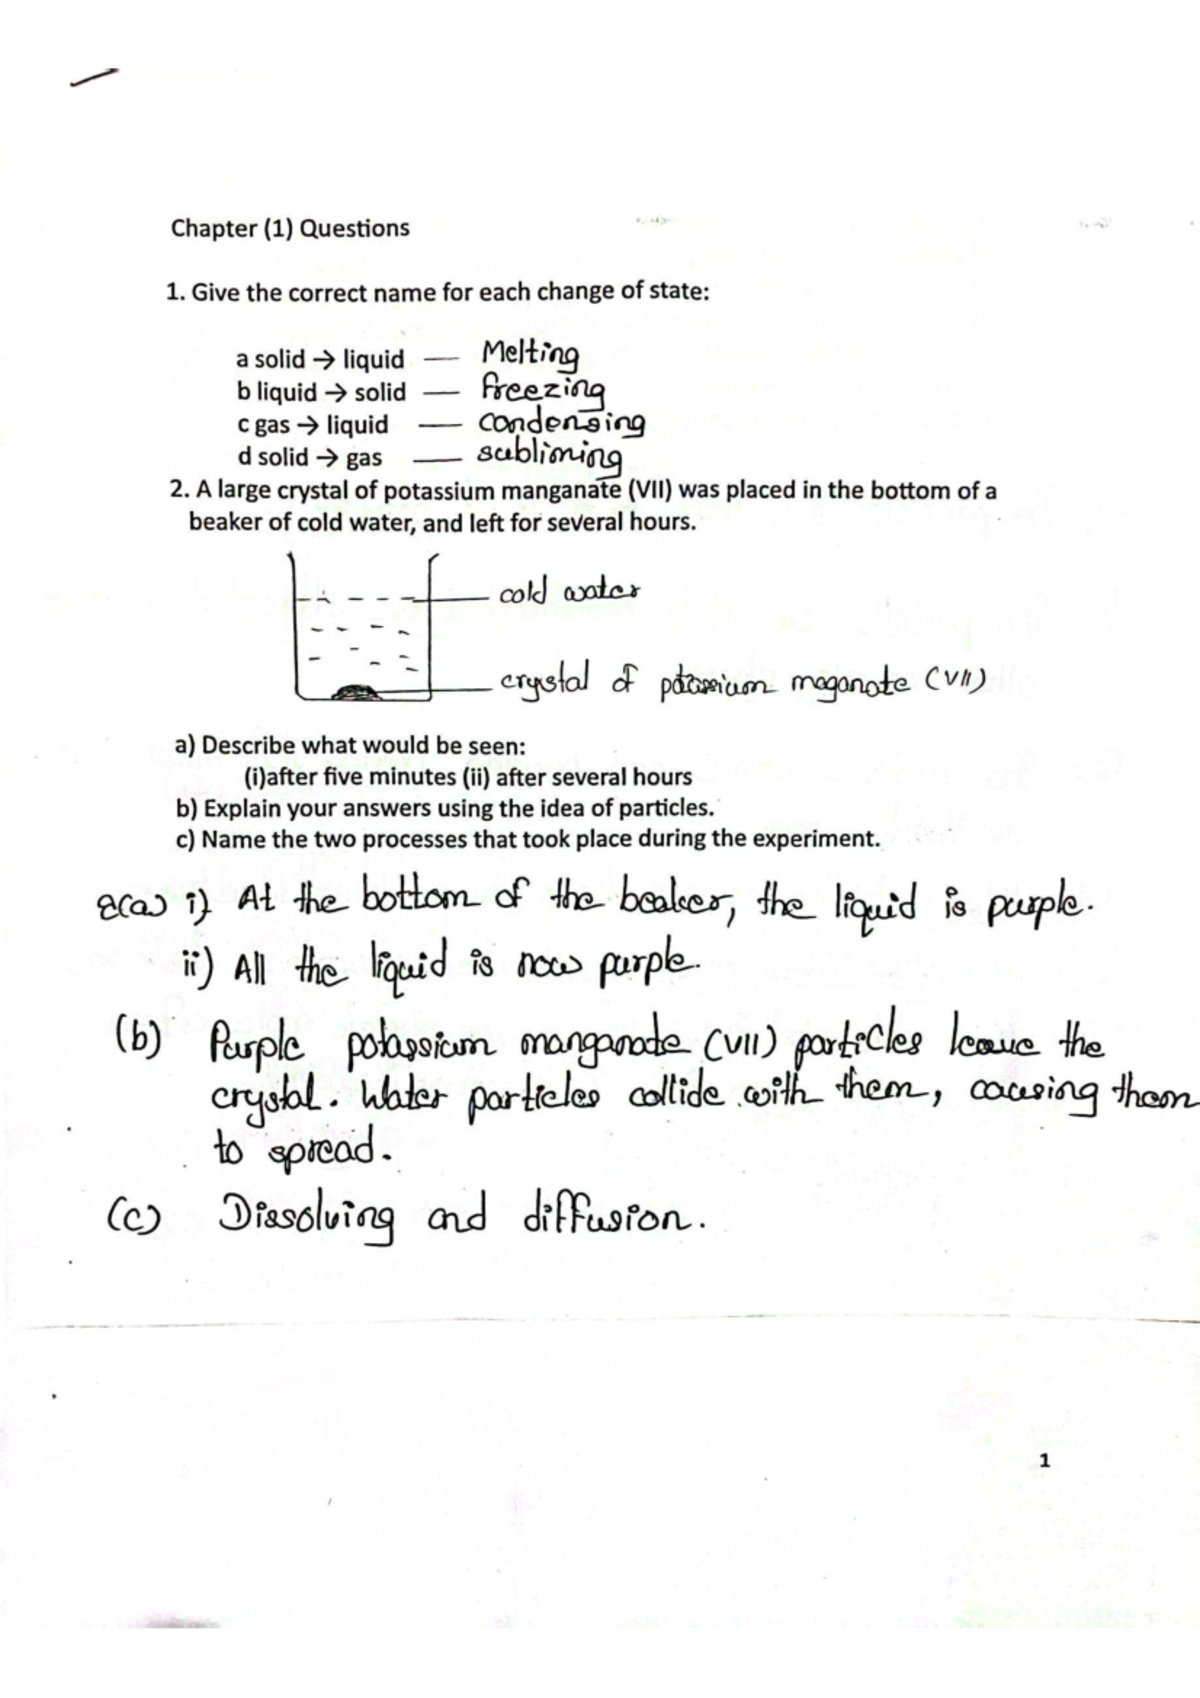 Chapter (1) Questions
1. Give the correct name for each change of state:
a solid → liquid — Melting
b liquid → solid — freezing
c gas → liquid — condensing
d solid → gas — subliming
2. A large crystal of potassium manganate (VII) was placed in the bottom of a
beaker of cold water, and left for several hours.
cold water
crystal of potassium maganate (VII)
a) Describe what would be seen:
(i)after five minutes (ii) after several hours
b) Explain your answers using the idea of particles.
c) Name the two processes that took place during the experiment.
2(a) i) At the bottom of the beaker, the liquid is purple.
ii) All the liquid is now purple.
(b) Purple potassium manganate (VII) particles leave the
crystal. Water particles collide with them, causing them
to spread.
(c) Dissolving and diffusion.
1